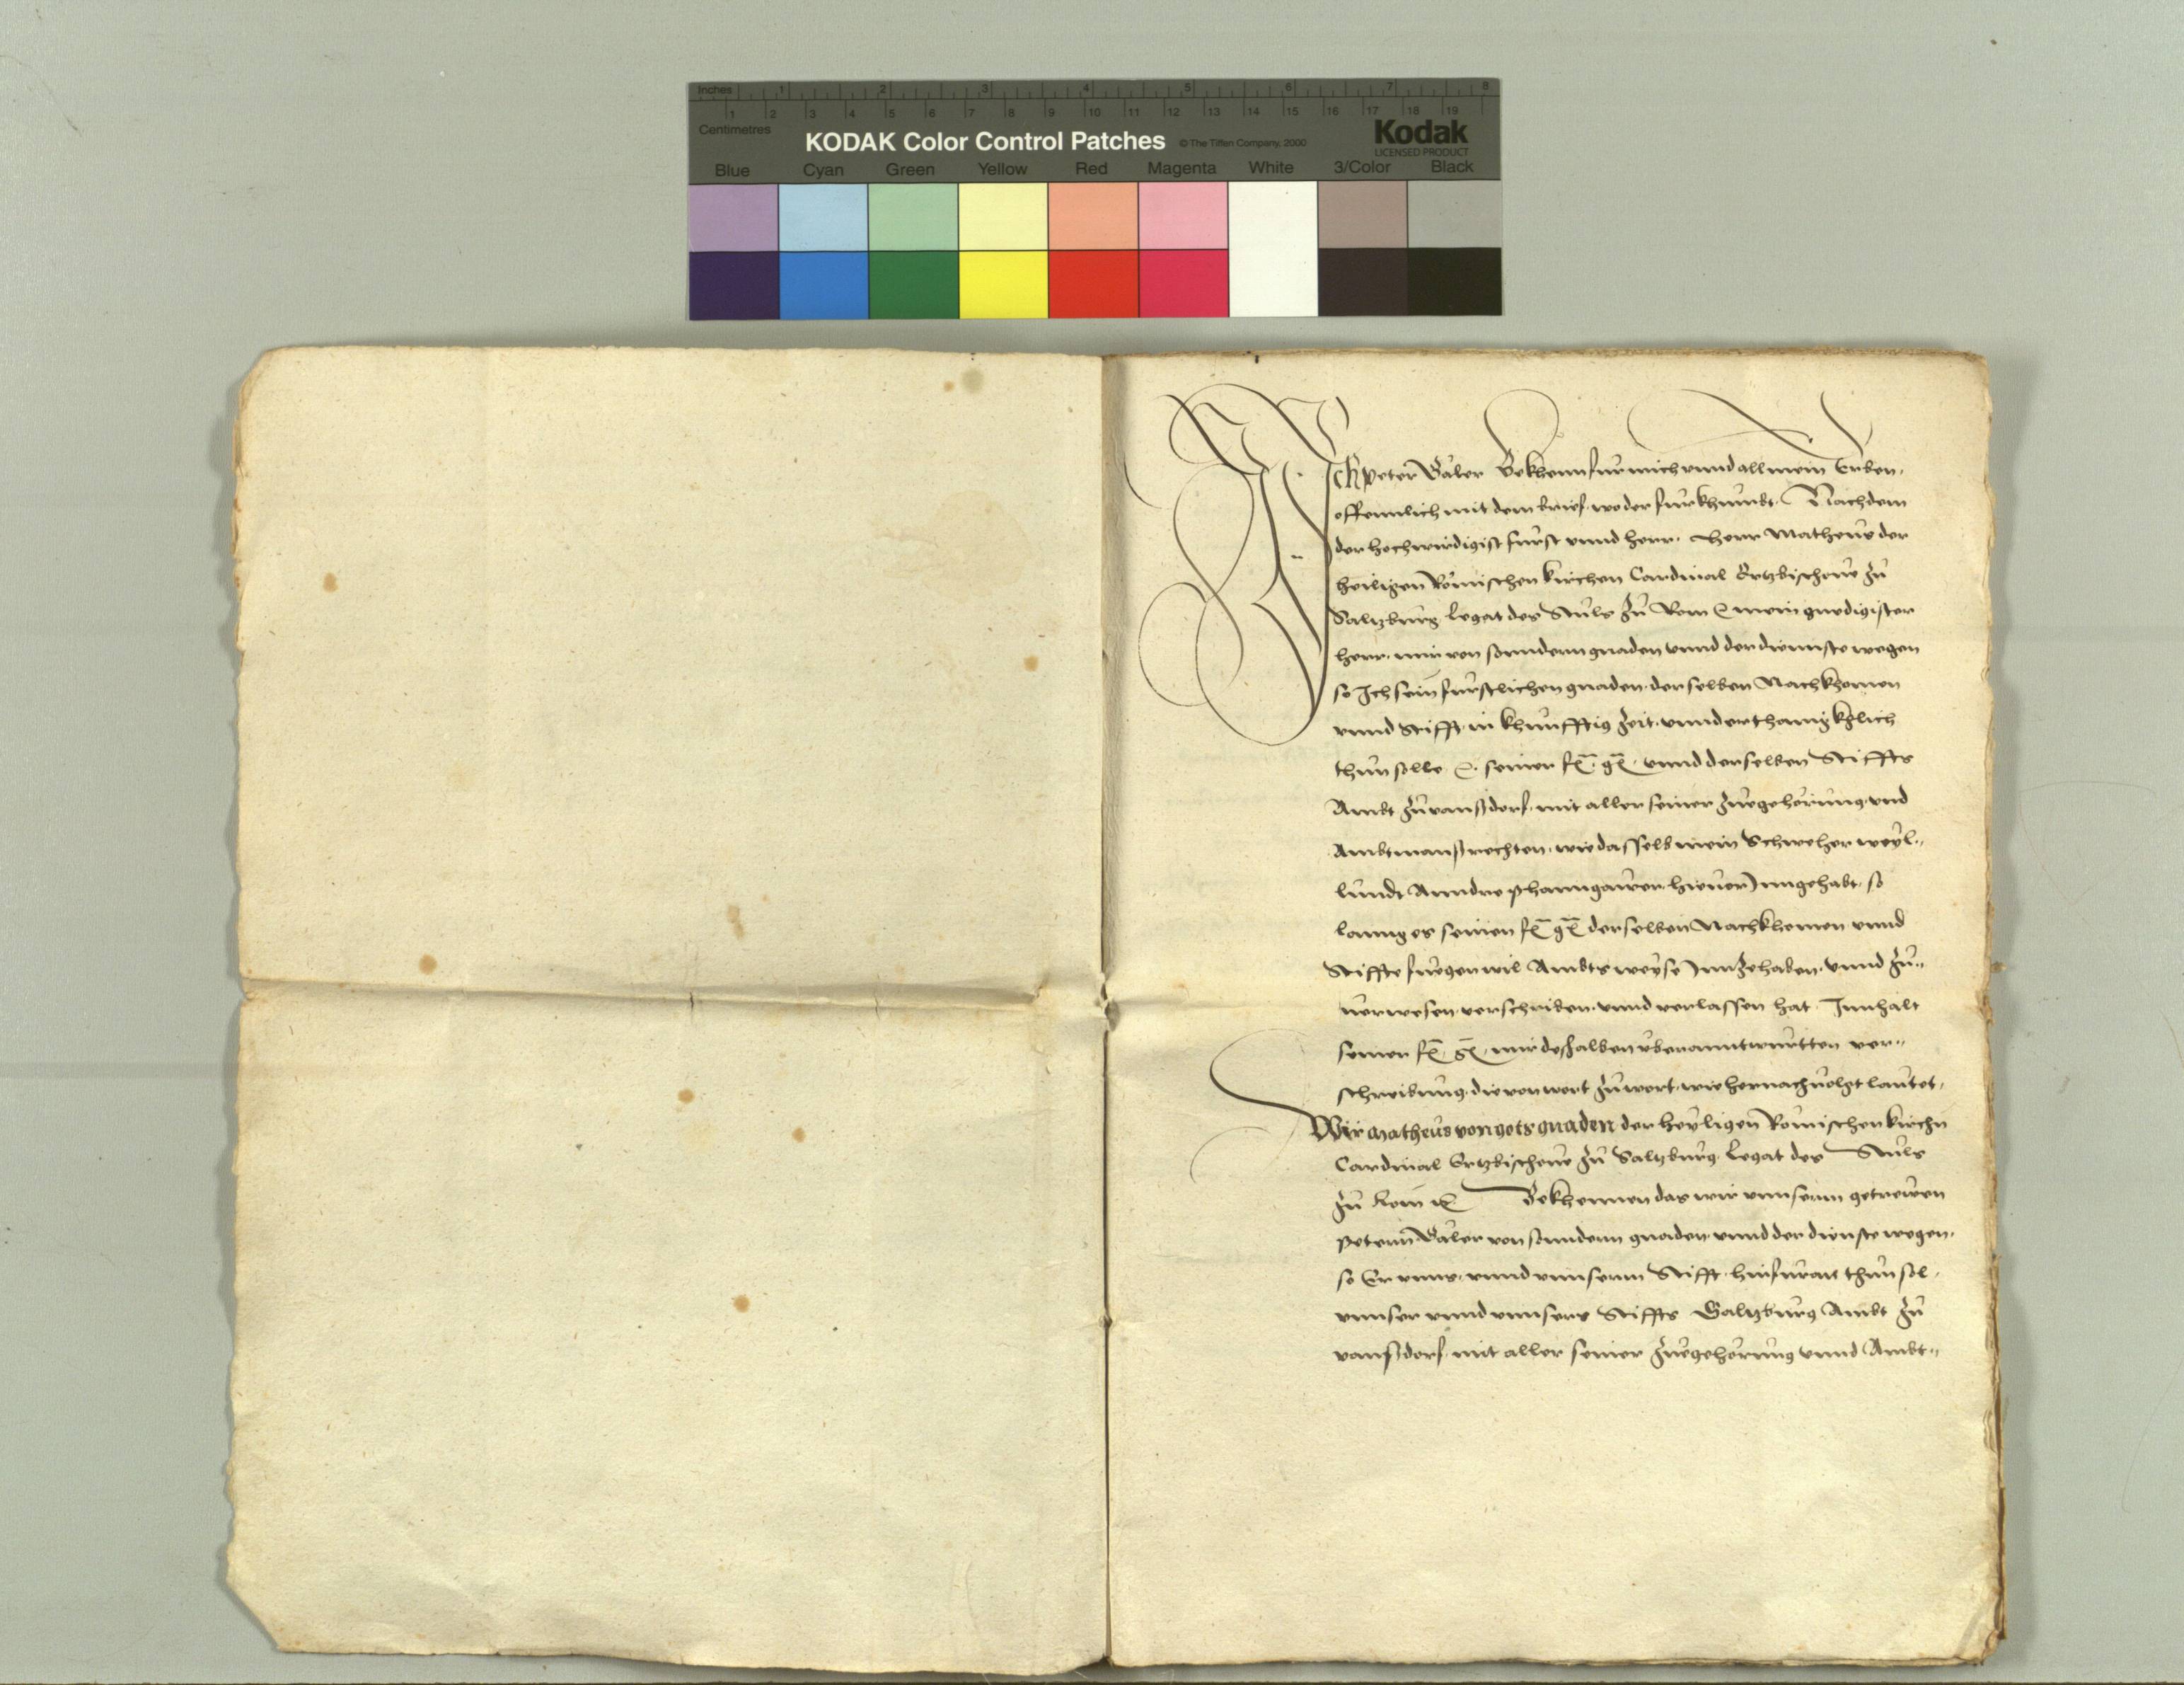 Inches 1 2 3 4 5 6 7 8
Centimetres 1 2 3 4 5 6 7 8 9 10 11 12 13 14 15 16 17 18 19
KODAK Color Control Patches © The Tiffen Company, 2000 Kodak
LICENSED PRODUCT
Blue Cyan Green Yellow Red Magenta White 3/Color Black
Ich Peter Väler Bekhenn fur mich vnnd all mein Erben,
offennlich mit dem brief, wo der furkhumbt. Nachdem
der hochwirdigist furst vnnd herr. Herr Matheus der
heiligen Römischen kirchen Cardinal Ertzbischoue zu
Saltzburg Legat des Stuls zu Rom mein gnedigister
herr. mir von sonndern gnaden vnnd der diennste wegen
so Ich sein furstlichen gnaden. derselben Nachkhomen
vnnd Stifft. in khunfftig zeit. vnnderthanigkhlich
thun solle seiner f. g. vnnd derselben Stiffts
Ambt zu vanßdorf. mit aller seiner zuegehörung. vnd
Ambtmanßrechten. wie dasselb mein Schweher weyl„
lundt Anndre hieuor Inngehabt. so
lanng es seinen f. g. derselben Nachkhomen vnnd
Stiffte fuegen wil Ambtsweyse Innzehaben. vnnd zu„
uerwesen. verschriben. vnnd verlassen hat. Innhalt
seiner f. g. mir deßhalben vberanntwurtten ver„
schreibung. die von wort zu wort. wie hernachuolgt lautet.
Wir Matheus von gots gnaden der heyligen Römischen kirchn
Cardinal Ertzbischoue zu Saltzburg Legat des Stuls
zu Rom Bekhennen das wir vnnserm getrewen
Petern Väler von sonndern gnaden. vnnd der dienste wegen.
so Er vnns. vnnd vnnserm Stifft. hinfuran thun sol.
vnnser vnnd vnnsers Stiffts Saltzburg Ambt zu
vanßdorf. mit aller seiner zuegehörung vnnd Ambt„